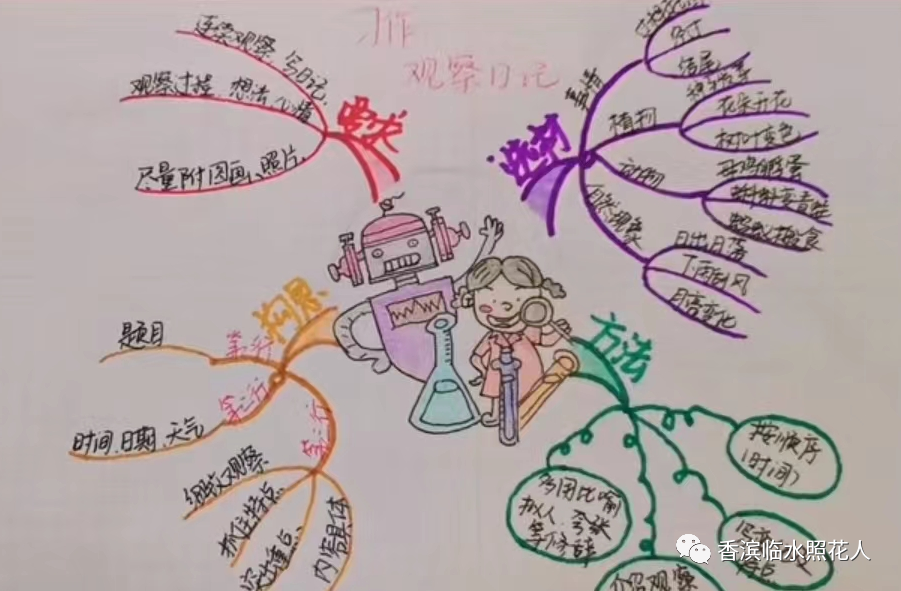 习作
观察日记
要求
连续观察,写日记,
观察过程、想法、心情
尽量附图画、照片,
选材
植物
发芽
结尾
种子发芽
花朵开花
树叶变色
动物
母鸡孵蛋
蝌蚪变青蛙
蚂蚁抢食
自然现象
日出日落
下雨刮风
月亮变化
构思
第一行
题目
第二行
时间、日期、天气
第三行
细致观察
抓住特点
突出重点
内容具体
方法
按顺序
(时间)
多用比喻
拟人、夸张
等修辞
介绍观察
香滨临水照花人